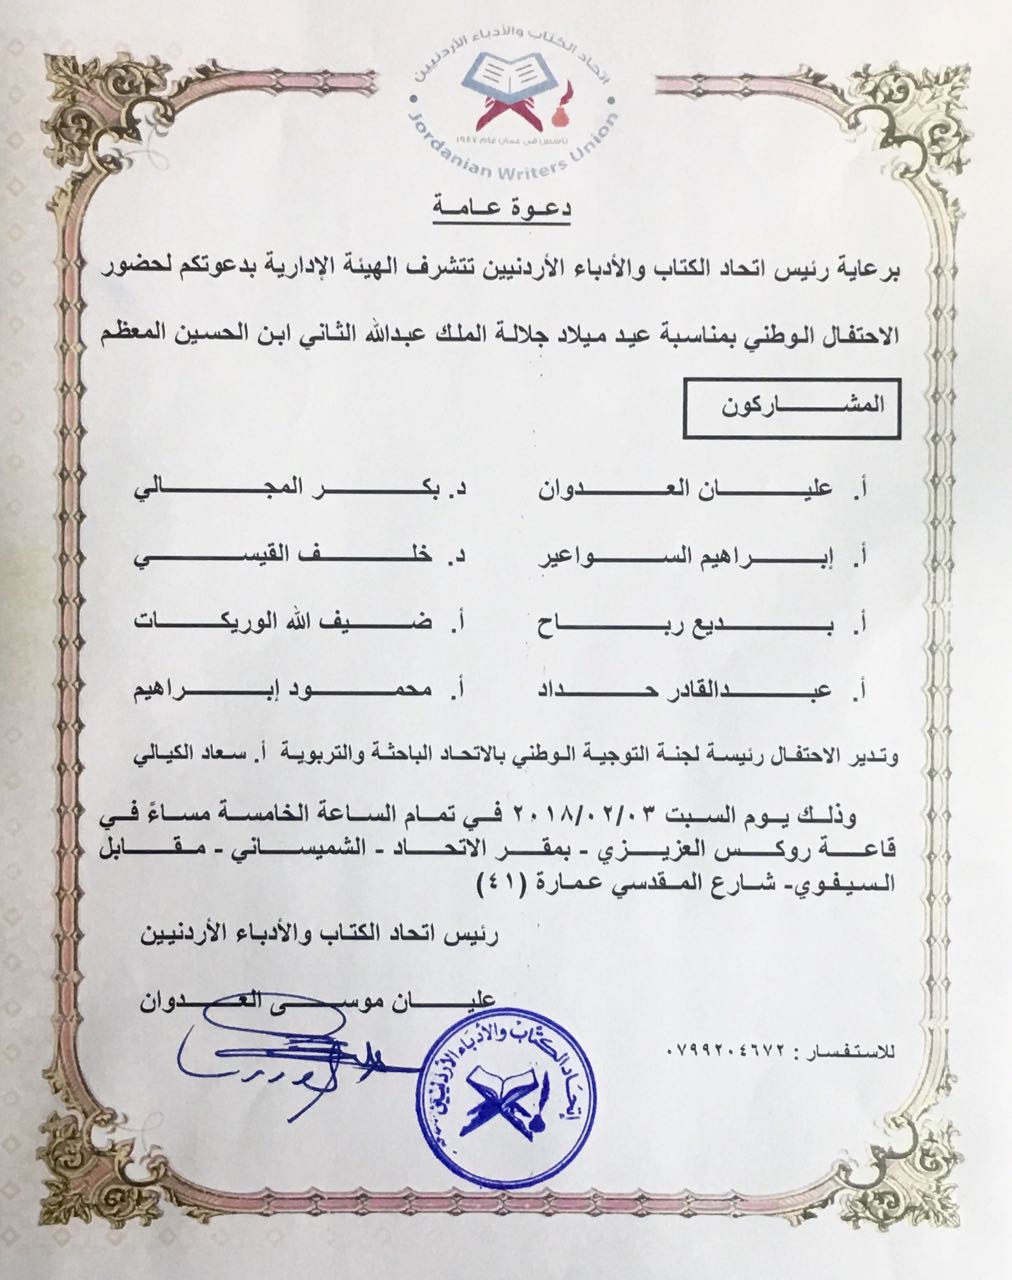 اتحاد الكتاب والأدباء الأردنيين
تأسس في عمان عام ١٩٨٧
Jordanian Writers Union
دعوة عامة
برعاية رئيس اتحاد الكتاب والأدباء الأردنيين تتشرف الهيئة الإدارية بدعوتكم لحضور
الاحتفال الوطني بمناسبة عيد ميلاد جلالة الملك عبدالله الثاني ابن الحسين المعظم
المشاركون
أ. عليان العدوان د. بكر المجالي
أ. إبراهيم السواعير د. خلف القيسي
أ. بديع رباح أ. ضيف الله الوريكات
أ. عبدالقادر حداد أ. محمود إبراهيم
وتدير الاحتفال رئيسة لجنة التوجية الوطني بالاتحاد الباحثة والتربوية أ. سعاد الكيالي
وذلك يوم السبت ٢٠١٨/٠٢/٠٣ في تمام الساعة الخامسة مساءً في
قاعة روكس العزيزي - بمقر الاتحاد - الشميساني - مقابل
السيفوي- شارع المقدسي عمارة (٤١)
رئيس اتحاد الكتاب والأدباء الأردنيين
عليان موسى العدوان
للاستفسار : ٠٧٩٩٢٠٤٦٧٢
إتحاد الكتاب والأدباء الأردنيين